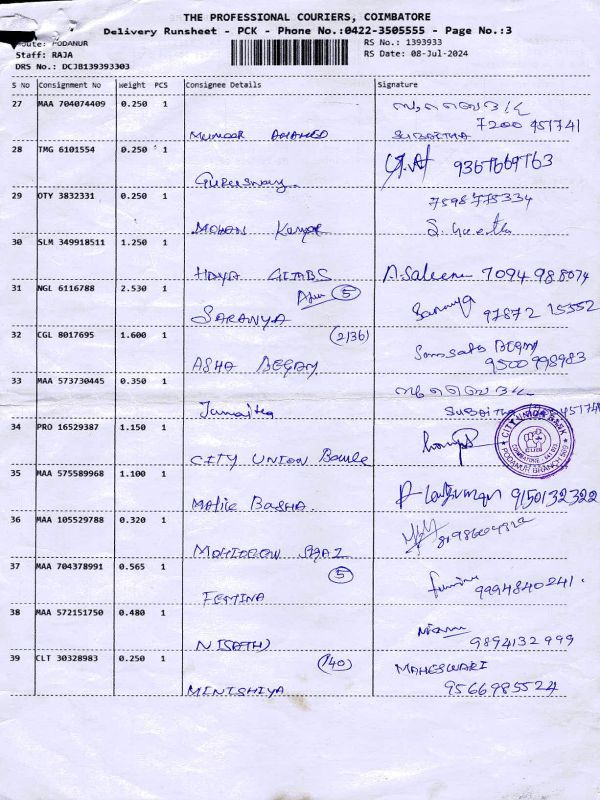 THE PROFESSIONAL COURIERS, COIMBATORE
Delivery Runsheet - PCK - Phone No.:0422-3505555 - Page No.:3
Route: PODANUR RS No.: 1393933
Staff: RAJA RS Date: 08-Jul-2024
DRS No.: DCJB139393303
S No Consignment No Weight PCS Consignee Details Signature
27 MAA 704074409 0.250 1
7200 451741
SUBAITHA
28 TMG 6101554 0.250 1
Guruswamy
29 OTY 3832331 0.250 1 7598775334
MOHAN Kumar S. Geetha
30 SLM 349918511 1.250 1
HAYA A. Saleema 7094 988074
31 NGL 6116788 2.530 1 5
SARANYA Saranya 97872 15352
32 CGL 8017695 1.600 1 (2136)
ASHA BEGAM BEGAM
9500998983
33 MAA 573730445 0.350 1
SUBAITHA
34 PRO 16529387 1.150 1
CITY UNION BANK
PODANUR BRANCH
CITY UNION Bank
35 MAA 575589968 1.100 1
Malic Basha 9150132322
36 MAA 105529788 0.320 1
37 MAA 704378991 0.565 1 5
FEMINA 9994840241.
38 MAA 572151750 0.480 1
9894132999
39 CLT 30328983 0.250 1 (140) MAHESWARI
MINISHIYA 9566985524